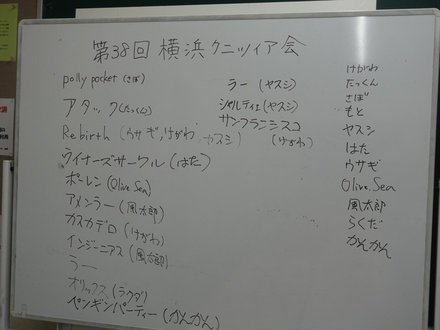 第38回 横浜クニツィア会
polly pocket (さぼ)
アタック (たっくん)
Rebirth (ウサギ, けがわ, ヤスシ)
ライナーズサークル (はた)
ポーレン (Olive.Sea)
アメンラー (風太郎)
カスカデロ (けがわ)
インジーニアス (風太郎)
ラー
オリックス (ラクダ)
ペンギンパーティー (かんかん)
ラー (ヤスシ)
シャルティエ (ヤスシ)
サンフランシスコ
(けがわ)
けがわ
たっくん
さぼ
もと
ヤスシ
はた
ウサギ
Olive.Sea
風太郎
らくだ
かんかん